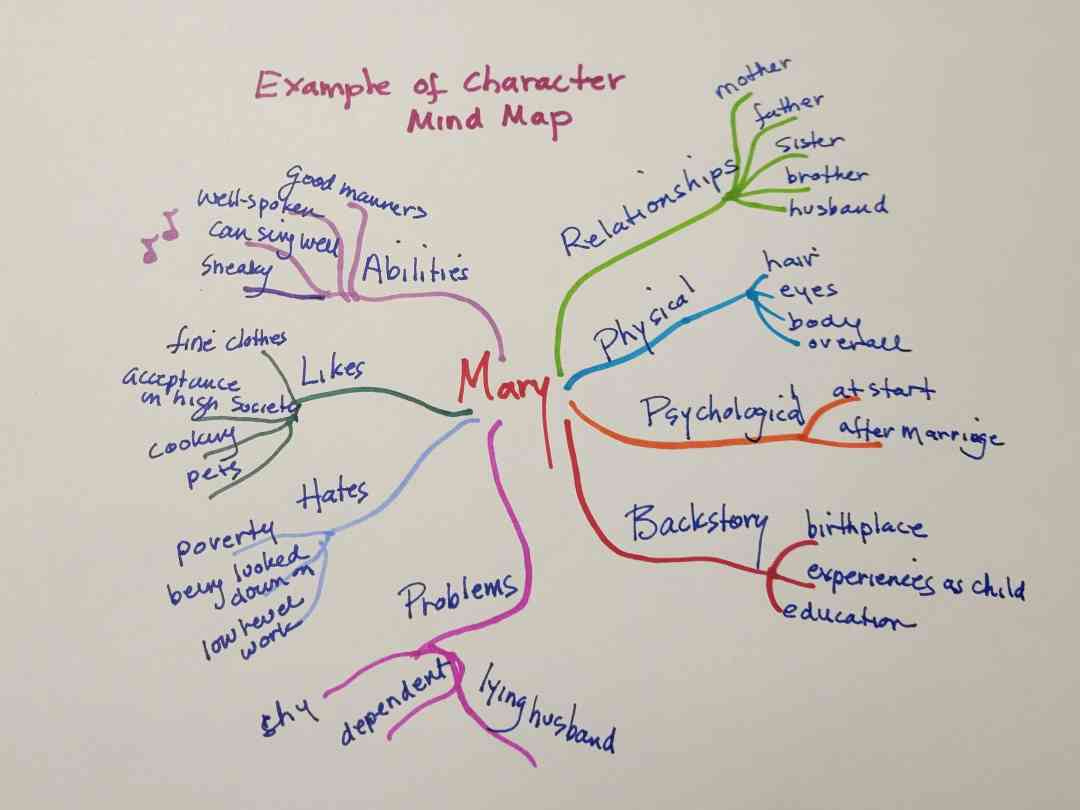 Example of Character
Mind Map
Relationships
mother
father
sister
brother
husband
Physical
hair
eyes
body
overall
Psychological
at start
after marriage
Backstory
birthplace
experiences as child
education
Mary
Abilities
good manners
well-spoken
can sing well
sneaky
Likes
fine clothes
acceptance
in high society
cooking
pets
Hates
poverty
being looked
down on
low level
work
Problems
shy
dependent
lying husband